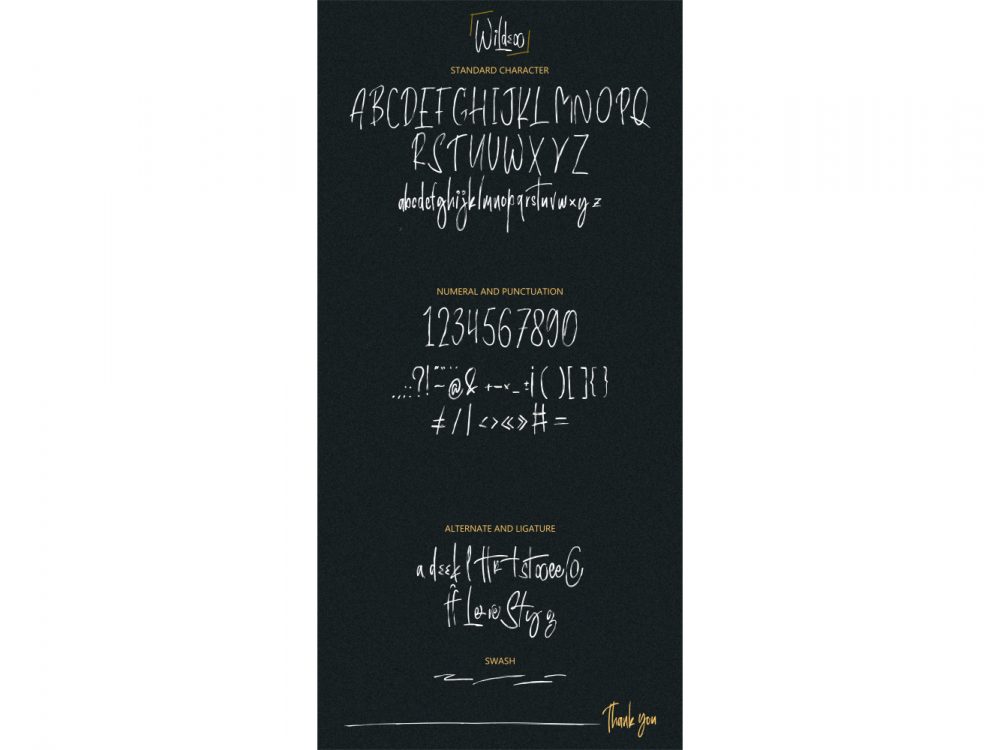 Wildeoo
STANDARD CHARACTER
ABCDEFGHIJKLMNOPQ
RSTUVWXYZ
abcdefghijklmnopqrstuvwxyz
NUMERAL AND PUNCTUATION
1234567890
.,;:?!~@&+-×_±¡()[]{}
≠/|<>«»#=
ALTERNATE AND LIGATURE
SWASH
Thank you